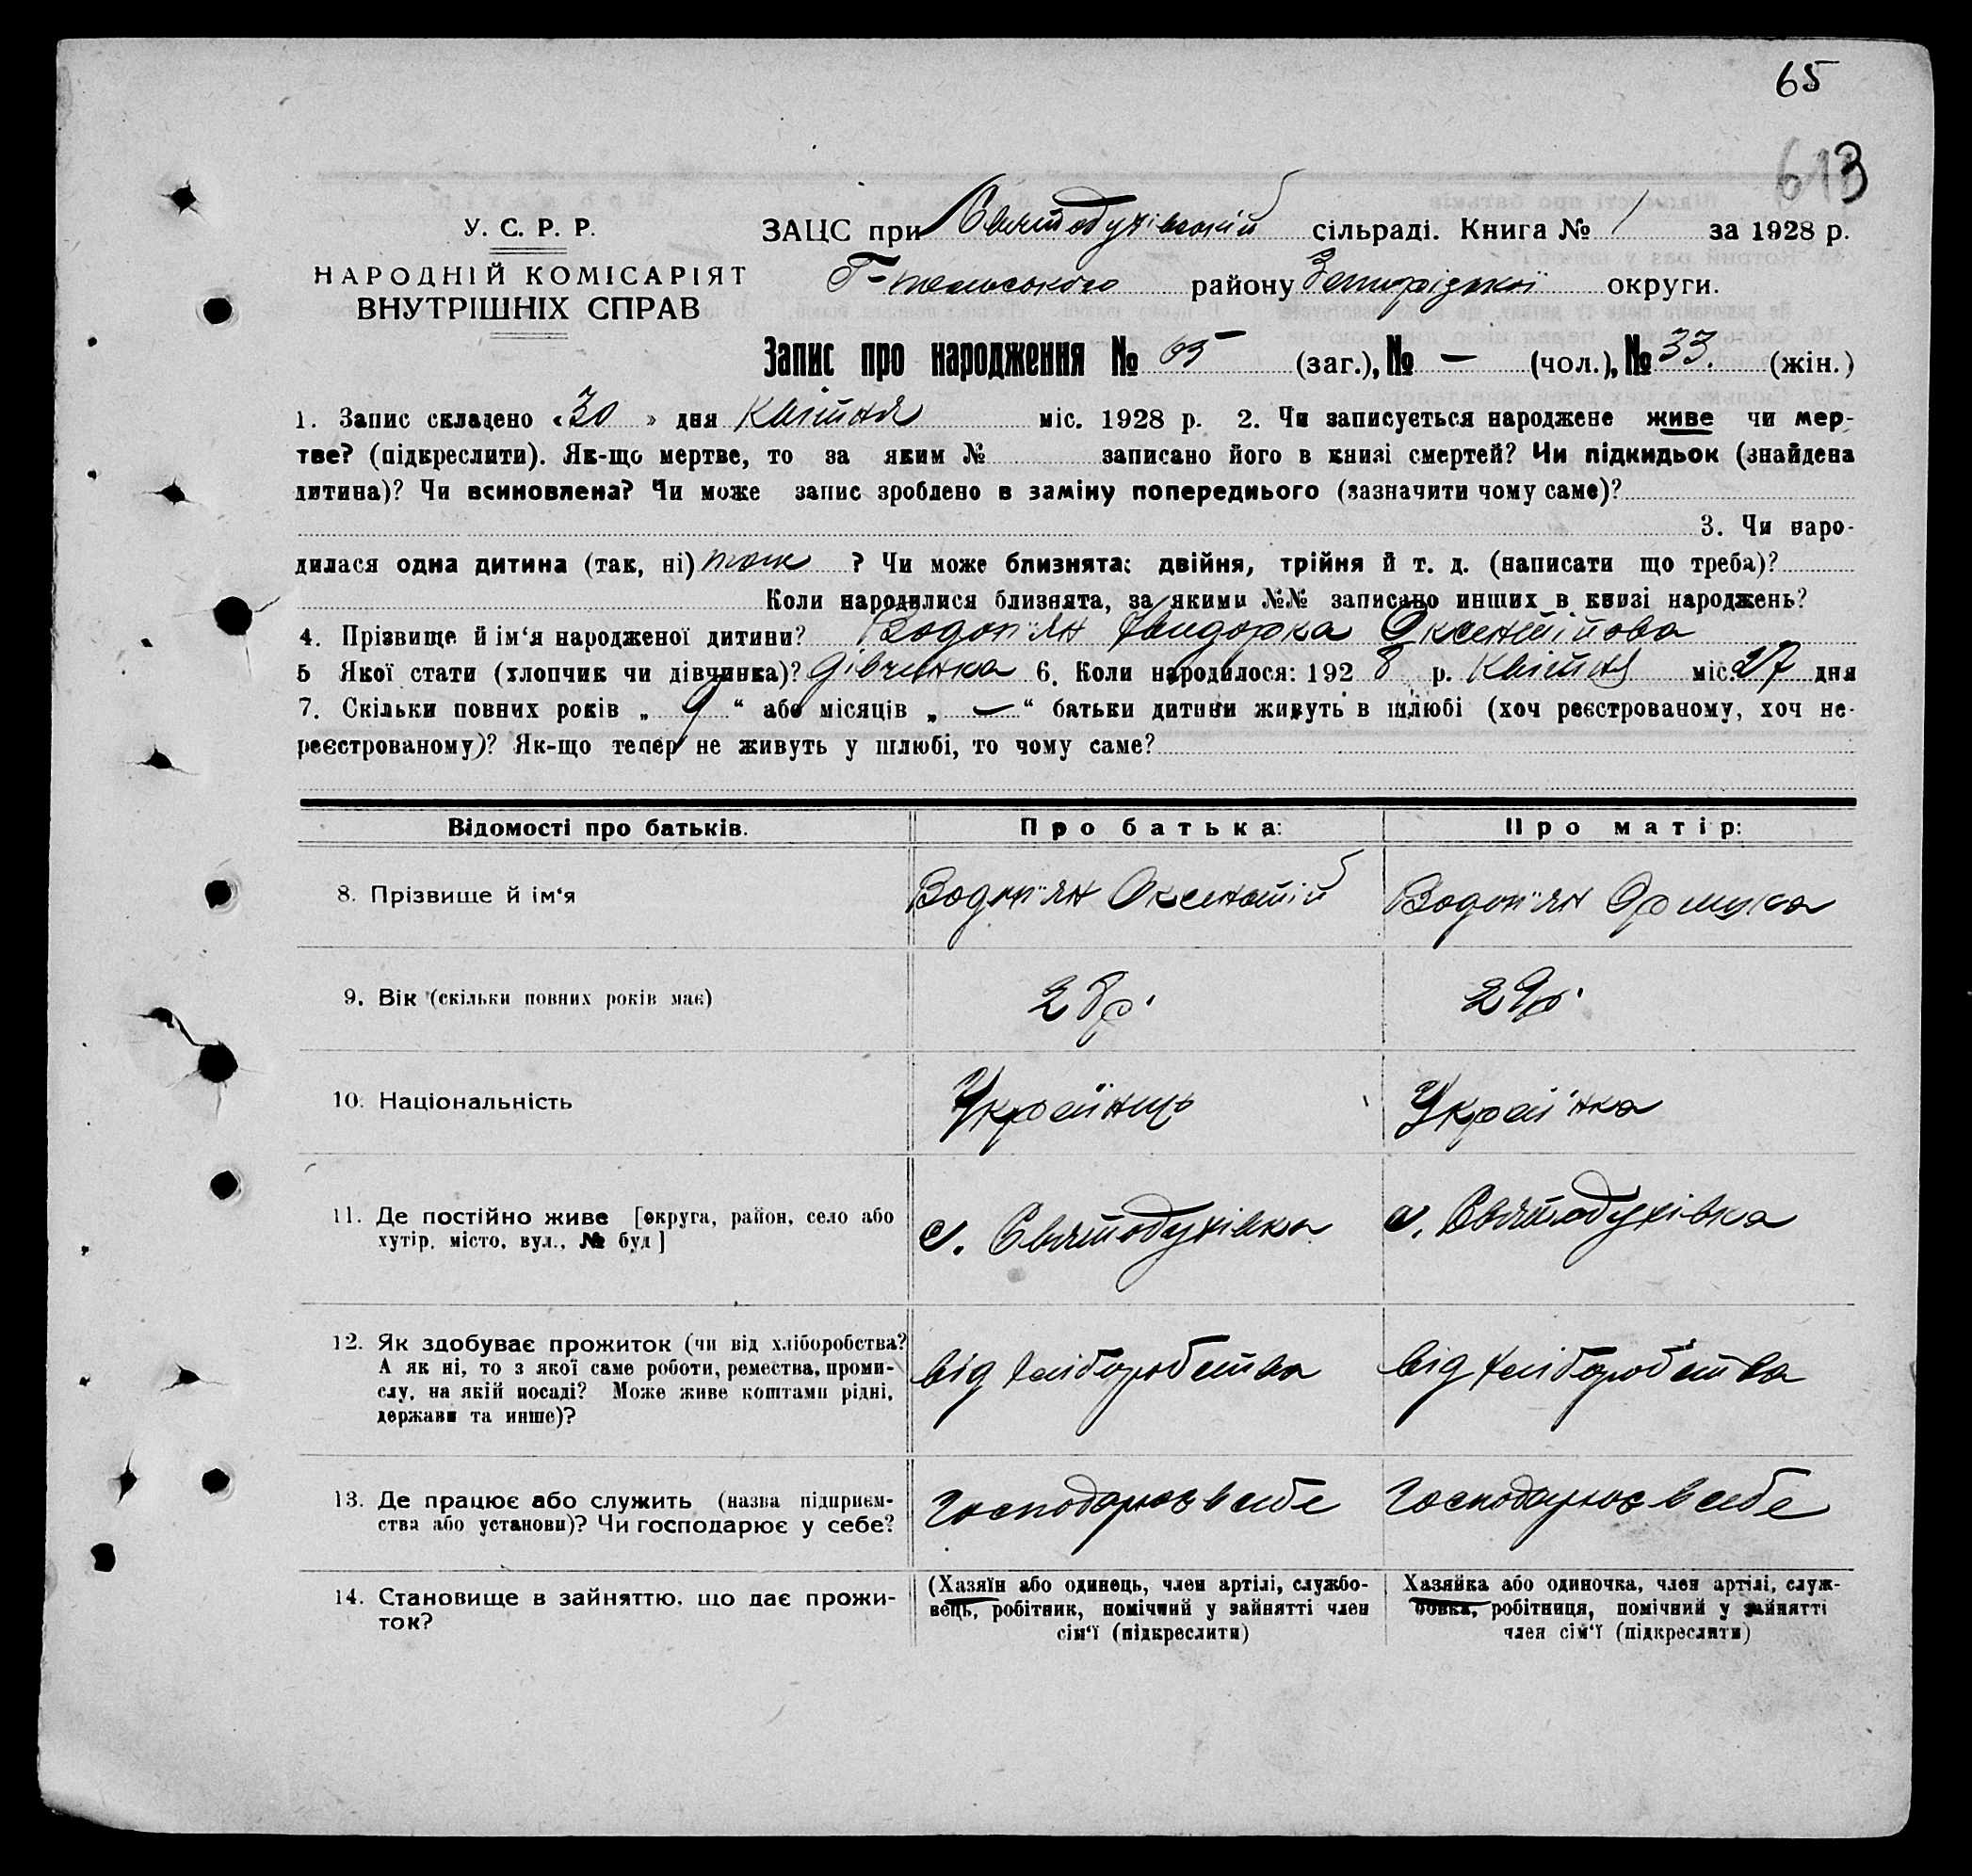 65
613
У. С. Р. Р.
НАРОДНІЙ КОМІСАРІЯТ
ВНУТРІШНІХ СПРАВ
ЗАЦС при Святодухівській сільраді. Книга № 1 за 1928 р.
Г-польського району Запорізької округи.
Запис про народження № 65 (заг.), № — (чол.), № 33. (жін.)
1. Запис складено «30» дня Квітня міс. 1928 р. 2. Чи записується народжене живе чи мер-
тве? (підкреслити). Як-що мертве, то за яким № записано його в книзі смертей? Чи підкидьок (знайдена
дитина)? Чи всиновлена? Чи може запис зроблено в заміну попереднього (зазначити чому саме)?
3. Чи наро-
дилася одна дитина (так, ні) так ? Чи може близнята: двійня, трійня й т. д. (написати що треба)?
Коли народилися близнята, за якими №№ записано инших в книзі народжень?
4. Прізвище й ім‘я народженої дитини? Водоп'ян Хвидорка Оксентійова
5 Якої стати (хлопчик чи дівчинка)? дівчинка 6. Коли народилося: 1928 р. Квітня міс. 27 дня
7. Скільки повних років „ 9 “ або місяців „ — “ батьки дитини живуть в шлюбі (хоч реєстрованому, хоч не-
реєстрованому)? Як-що тепер не живуть у шлюбі, то чому саме?
Відомості про батьків. Про батька: Про матір:
8. Прізвище й ім‘я Водоп'ян Оксентій Водоп'ян Оришка
9. Вік (скільки повних років має) 28 р. 29 р.
10. Національність Українець Українка
11. Де постійно живе [округа, район, село або
хутір, місто, вул., № буд] с. Святодухівка с. Святодухівка
12. Як здобуває прожиток (чи від хліборобства?
А як ні, то з якої саме роботи, ремества, проми-
слу, на якій посаді? Може живе коштами рідні,
держави та инше)? від хліборобства від хліборобства
13. Де працює або служить (назва підприєм-
ства або установи)? Чи господарює у себе? господарює в себе господарює в себе
14. Становище в зайняттю, що дає прожи-
ток?
(Хазяїн або одинець, член артілі, службо-
вець, робітник, помічний у зайнятті член
сім‘ї (підкреслити)
Хазяйка або одиночка, член артілі, служ-
бовка, робітниця, помічний у зайнятті
член сім‘ї (підкреслити)